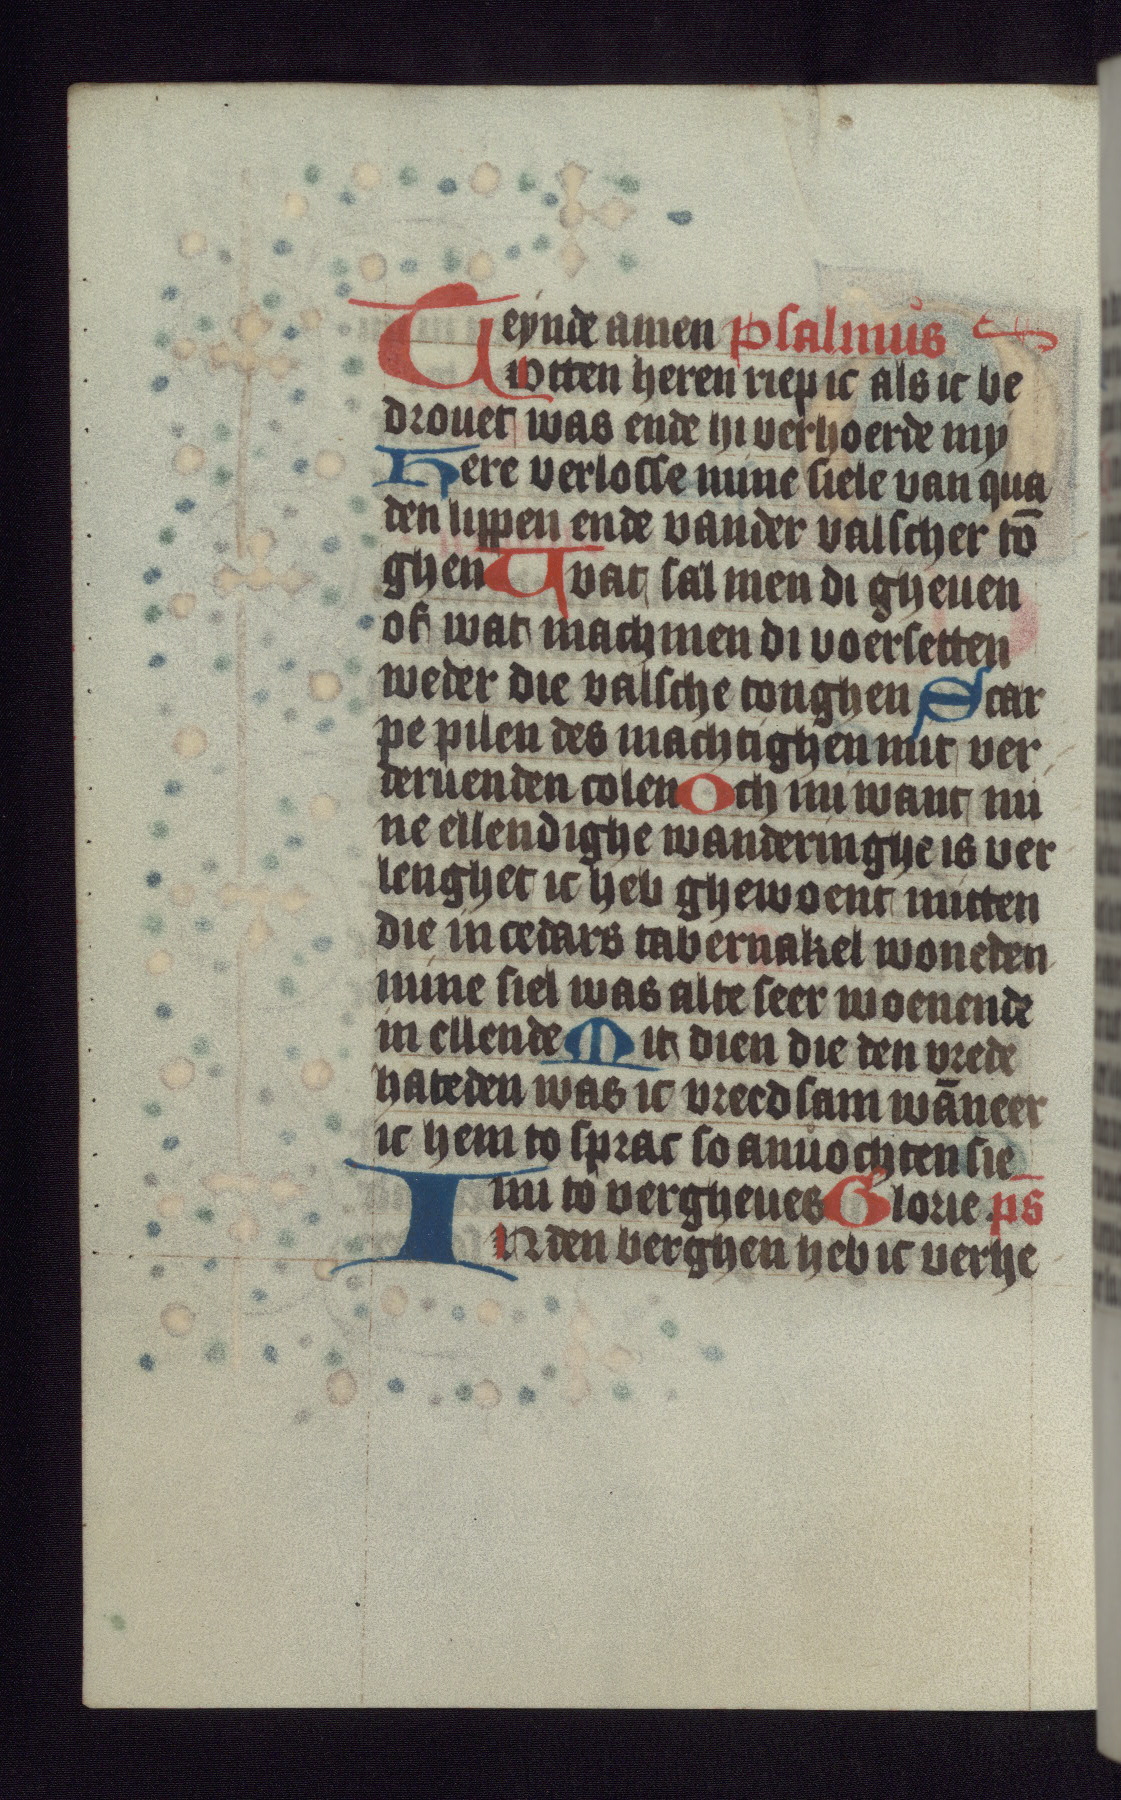 eynde amen psalmus
Totten heren riep ic als ic be
drouet was ende hi verhoerde my
Here verlosse mine siele van qua
den lippen ende vander valscher tō
ghen Wat sal men di gheuen
of wat mach men di voersetten
weder die valsche tonghen Scar
pe pilen des machtighen mit ver
deruenden colen Och mi want mi
ne ellendighe wanderinghe is ver
lenghet ic heb ghewoent mitten
die in cedars tabernakel woneden
mine siel was alte seer woenende
in ellende Mit dien die den vrede
hateden was ic vreedsam wāneer
ic hem to sprac so anuochten sie
mi to vergheues Glorie ps̄
IN den berghen heb ic verhe